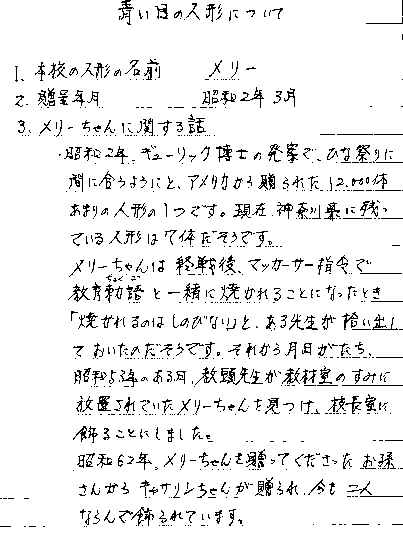 青い目の人形について
1. 本校の人形の名前 メリー
2. 贈呈年月 昭和2年3月
3. メリーちゃんに関する話
・昭和2年、ギューリック博士の発案で、ひな祭りに
間に合うようにと、アメリカから贈られた12,000体
あまりの人形の1つです。現在、神奈川県に残っ
ている人形は7体だそうです。
メリーちゃんは終戦後、マッカーサー指令で
教育勅語と一緒に焼かれることになったとき
「焼かれるのはしのびない」と、ある先生が拾い出し
ておいたのだそうです。それから月日がたち、
昭和53年のある日、教頭先生が教材室のすみに
放置されていたメリーちゃんを見つけ、校長室に
飾ることにしました。
昭和62年、メリーちゃんを贈ってくださったお孫
さんからキャサリンちゃんが贈られ、今も二人
ならんで飾られています。